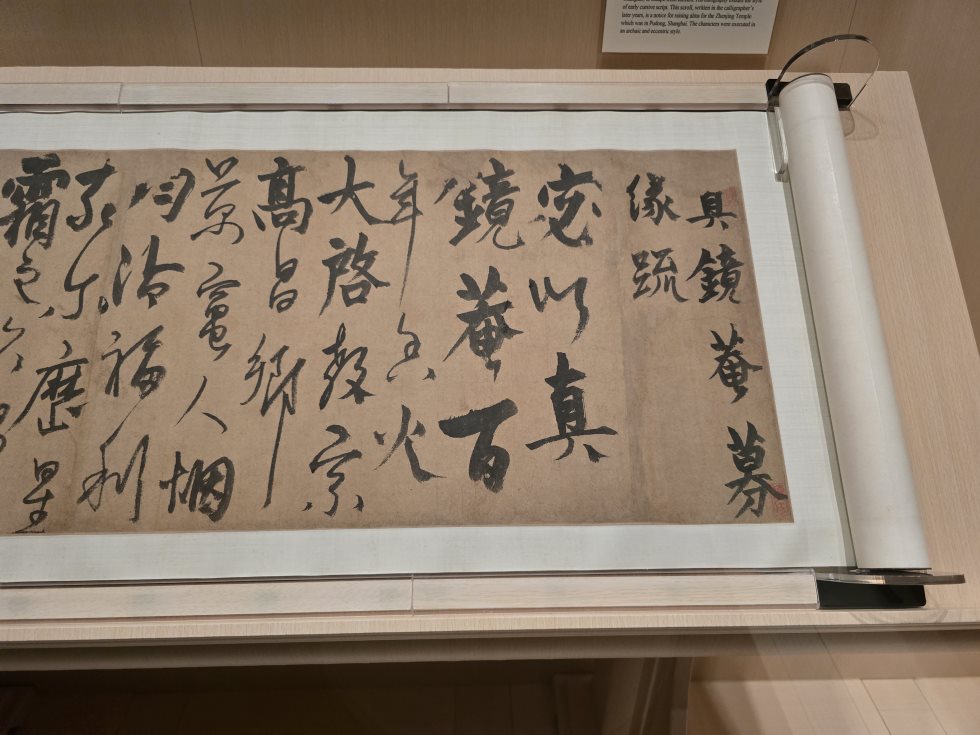 of early cursive script. This scroll, written in the calligrapher's
later years, is a notice for raising alms for the Zhenjing Temple
which was in Pudong, Shanghai. The characters were executed in
an archaic and eccentric style.
真鏡菴募
緣疏
宓以真
鏡菴百
年香火
大啓教宗
高昌鄉
萬竈人烟
均沾福利
歷
霜星